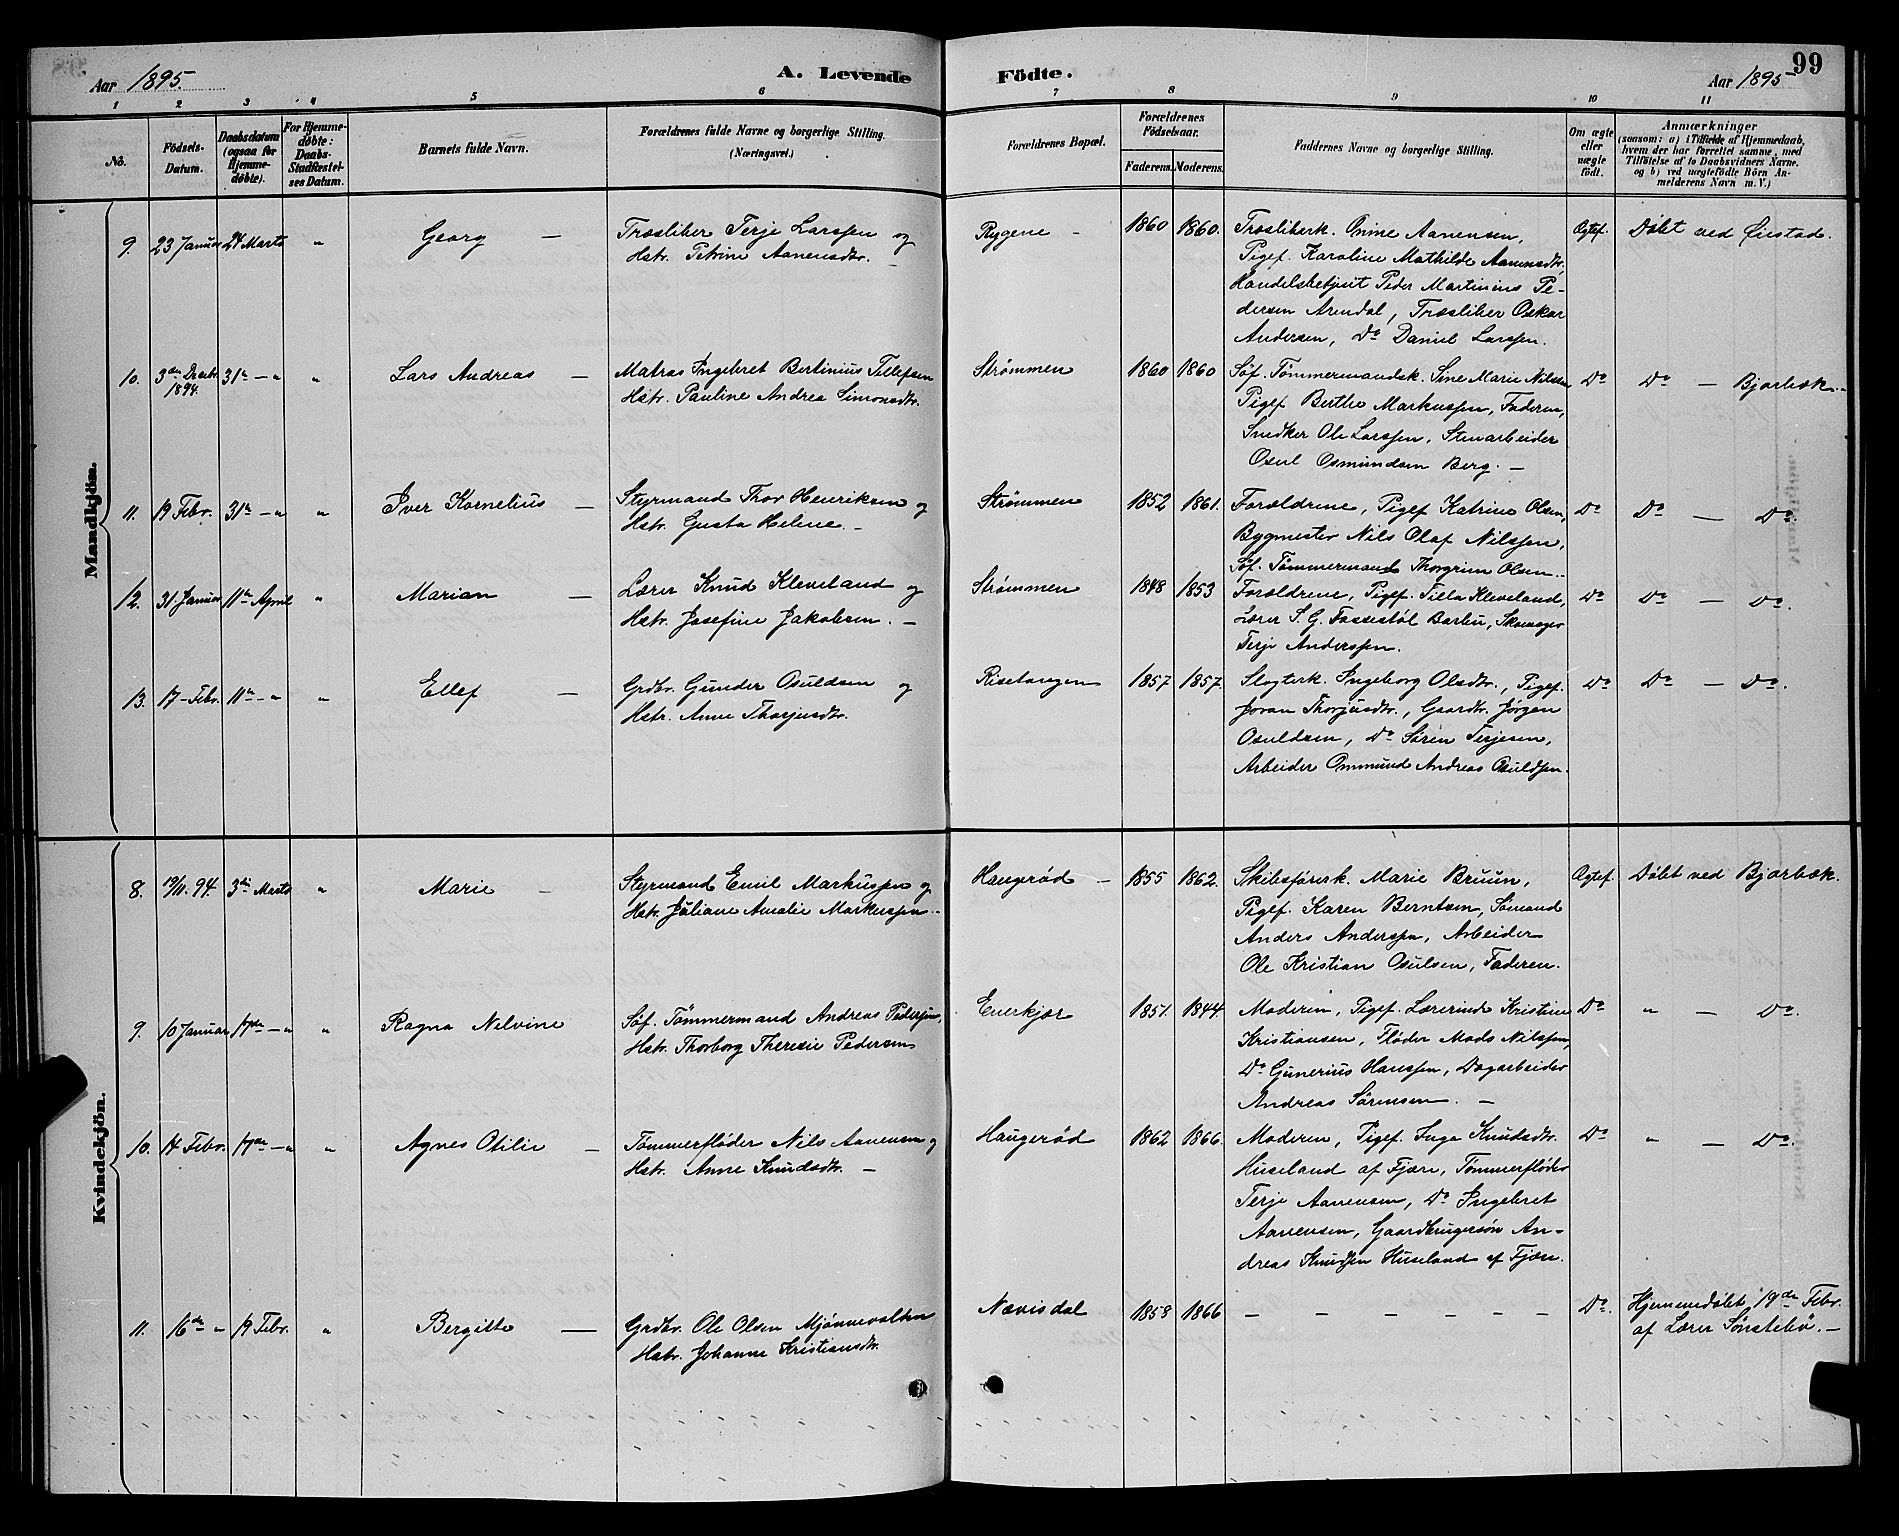 99
Aar 1895.
A. Levende Födte.
Aar 1895
1 2 3 4 5 6 7 8 9 10 11
No.
Födsels-
Datum.
Daabsdatum
(ogsaa for
Hjemme-
döbte).
For Hjemme-
döbte:
Daabs-
Stadfæstel-
ses Datum.
Barnets fulde Navn.
Forældrenes fulde Navne og borgerlige Stilling.
(Næringsvei.)
Forældrenes Bopæl.
Forældrenes
Födselsaar.
Faderens. Moderens.
Faddernes Navne og borgerlige Stilling.
Om ægte
eller
uægte
født.
Anmærkninger
(saasom: a) i Tilfælde af Hjemmedaab,
hvem der har forrettet samme, med
Tilføielse af to Daabsvidners Navne,
og b) ved uægtefödte Börn An-
melderens Navn m. V.)
Mandkjön.
9. 23 Januar 24 Marts " Georg — Træsliber Terje Larssen og
Hstr. Petrine Aanensdtr.
Rygene 1860 1860. Træsliberk. Onine Aanensen,
Pigef. Karoline Mathilde Aanensdtr,
Handelsbetjent Peder Martinius Pe-
dersen Arendal, Træsliber Oskar
Andersen, Do Daniel Larssen.
Ægtef. Døbt ved Øiestad.
10. 3die Decbr. 1894. 31te — " " Lars Andreas — Matros Ingebret Bertinius Tellefsen
Hstr. Pauline Andrea Simonsdtr.
Strømmen 1860 1860 Søf. Tømmermandsk. Sine Marie Nilsen
Pigef Berthe Markussen, Faderen,
Snedker Ole Larssen, Stenarbeider
Osul Osmundsen Berg. —
Do Do — Bjorbæk.
11. 19 Febr. 31te — " " Iver Kornelius — Styrmand Thor Henriksen og
Hstr. Gusta Helene —
Strømmen 1852 1861. Forældrene, Pigef Katrine Olsen,
Bygmester Nils Olaf Nilssen,
Søf. Tømmermand Thorgrim Olsen.
Do Do — Do
12. 31 Januar 11te April " Marian — Lærer Knud Kleveland og
Hstr. Josefine Jakobsen. —
Strømmen 1848 1853 Forældrene, Pigef. Tilla Kleveland,
Lærer S. G. Fossestøl Barbu, Skomager
Terje Anderssen.
Do Do — Do.
13. 17 – Febr. 11te — " " Ellef — Grdbr. Gunder Osuldsen og
Hstr. Anne Thorjusdtr.
Risetangen 1857 1857 Slagterk. Ingeborg Olsdtr., Pigef.
Joran Thorjusdtr., Gaardbr. Jørgen
Osuldsen, Do Søren Terjesen,
Arbeider Ommund Andreas Osuldsen.
Do Do — Do.
Kvindekjön.
8. 19/11. 94. 3die Marts " Marie — Styrmand Emil Markussen og
Hstr. Juliane Amalie Markussen.
Haugerød — 1855 1862. Skibsførerk. Marie Bruun,
Pigef. Karen Berntsen, Sømand
Anders Anderssen, Arbeider
Ole Kristian Osulsen, Faderen.
Ægtef. Døbt ved Bjorbæk.
9. 10 Januar 17de — " " Ragna Nelvine Søf. Tømmermand Andreas Pedersen,
Hstr. Thorborg Theresie Pedersen
Enerkjær 1851. 1844. Moderen, Pigef. Lærerinde Kristine
Kristiansen, Fløder Mads Nilssen,
Do Gunerius Hanssen, Dagarbeider
Andreas Sørensen. —
Do " — Do.
10. 14 Febr. 17de — " " Agnes Otilie — Tømmerfløder Nils Aanensen og
Hstr. Anne Knudsdtr. —
Haugerød 1862 1866. Moderen, Pigef. Inga Knudsdtr.
Huseland af Fjære, Tømmerfløder
Terje Aanensen, Do Ingebret
Aanensen, Gaardbrugersøn An-
dreas Knudsen Huseland af Fjære.
Do " — Do.
11. 16de " 19 Febr. " Bergitte — Grdbr. Ole Olsen Mjønnevalken
Hstr. Johanne Kristiansdtr.
Nævisdal 1858 1866 — — — — — —
Do. Hjemmedøbt 19de Febr.
af Lærer Sønstebø. —